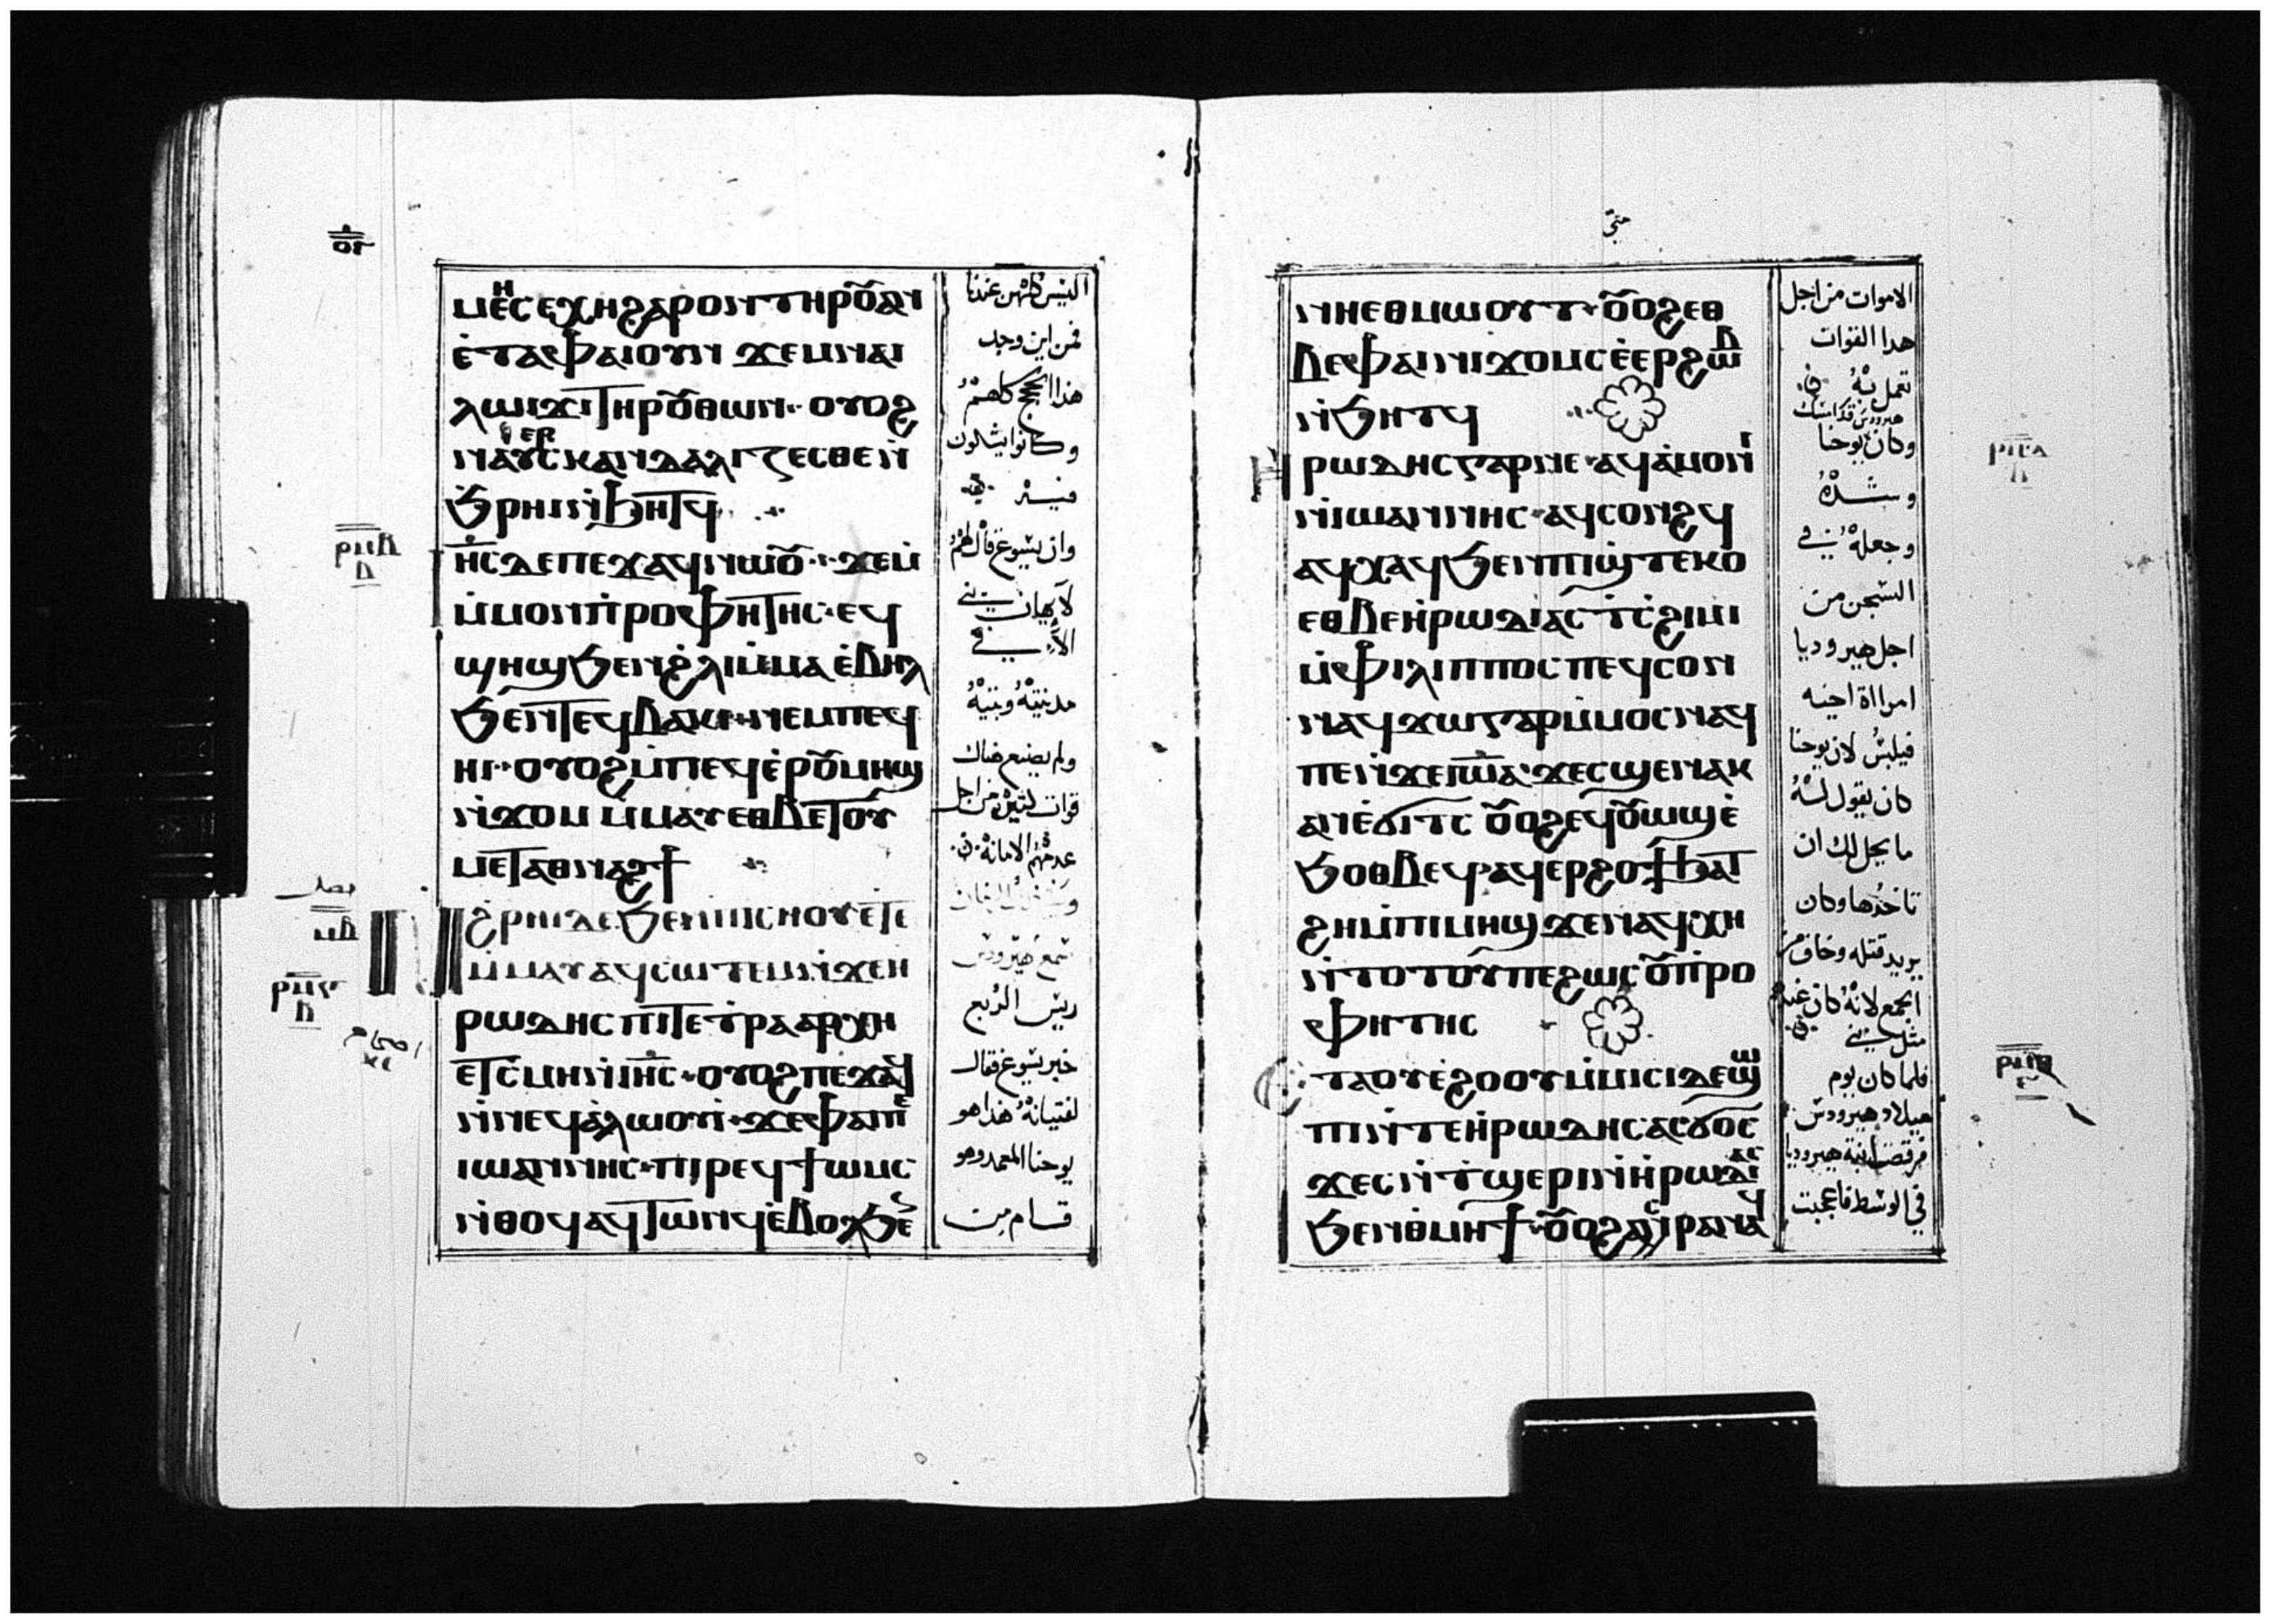 ⲙⲏⲉⲥⲉⲭⲏϩⲁⲣⲟⲛⲧⲏⲣⲟⲩⲁⲛ
ⲉ̀ⲧⲁⲫⲁⲓⲟⲩⲛ ϫⲉⲙⲛⲁⲓ
ⲗⲱⲓϫⲓⲧⲏⲣⲟⲩⲑⲱⲛ· ⲟⲩⲟϩ
ⲛⲁⲩⲉⲣⲥⲕⲁⲛⲇⲁⲗⲓⲍⲉⲥⲑⲉⲛ̀
ϧⲣⲏⲓⲛ̀ϧⲏⲧϥ
ⲓⲏ̅ⲥ̅ⲇⲉⲡⲉϫⲁϥⲛⲱⲟⲩ· ϫⲉⲙ̀
ⲙ̀ⲙⲟⲛⲡ̀ⲣⲟⲫⲏⲧⲏⲥ· ⲉϥ
ϣⲏϣϧⲉⲛϩ̀ⲗⲓⲙ̀ⲙⲁ ⲉ̀ⲃⲏⲗ
ϧⲉⲛⲧⲉϥⲃⲁⲕⲓ· ⲛⲉⲙⲡⲉϥ
ⲏⲓ· ⲟⲩⲟϩⲙ̀ⲡⲉϥⲉ̀ⲣⲟⲩⲙⲏϣ
ⲛ̀ϫⲟⲙ ⲙ̀ⲙⲁⲩⲉⲑⲃⲉⲧⲟⲩ
ⲙⲉⲧⲁⲑⲛⲁϩϯ
ϩ̀ⲣⲏⲓⲇⲉ ϧⲉⲛⲡⲓⲥⲏⲟⲩⲉⲧⲉ
ⲙ̀ⲙⲁⲩⲁϥⲥⲱⲧⲉⲙⲛ̀ϫⲉⲏ
ⲣⲱⲇⲏⲥ ⲡⲓⲧⲉⲧⲣⲁⲁⲣⲭⲏ
ⲉⲧⲥ̀ⲙⲏⲛ̀ⲓⲏ̅ⲥ̅· ⲟⲩⲟϩⲡⲉϫⲁϥ
ⲛ̀ⲛⲉϥⲁ̀ⲗⲱⲟⲩⲓ̀· ϫⲉⲫⲁⲓⲡⲉ
ⲓⲱⲁⲛⲛⲏⲥ· ⲡⲓⲣⲉϥϯⲱⲙⲥ
ⲛ̀ⲑⲟϥⲁϥⲧⲱⲛϥⲉ̀ⲃⲟⲗϧⲉ
اليس كلهن عندنا
فمن اين وجد
هذا الجميع كلهم
وكانوا يشكون
فيه
وان يسوع قال لهم
لا يهان نبي
الا في
مدينته وبيته
ولم يصنع هناك
قوات كثيره من اجل
عدمهم الامانة
سمع هيرودس
ريس الربع
خبر يسوع فقال
لفتيانه هذا هو
يوحنا المعمد وهو
قام من
متى
ⲛⲏⲉⲑⲙⲱⲟⲩⲧ· ⲟⲩⲟϩⲉⲑ
ⲃⲉⲫⲁⲓⲛⲓϫⲟⲙⲥⲉ̀ⲉⲣϩⲱⲃ
ⲛ̀ϧⲏⲧϥ
ⲏⲣⲱⲇⲏⲥⲅⲁⲣⲛⲉ· ⲁϥⲁ̀ⲙⲟⲛⲓ
ⲛ̀ⲓⲱⲁⲛⲛⲏⲥ· ⲁϥⲥⲟⲛϩϥ
ⲁϥⲭⲁϥϧⲉⲛⲡⲓϣ̀ⲧⲉⲕⲟ
ⲉⲑⲃⲉⲏ̀ⲣⲱⲇⲓⲁⲥ ⲧ̀ⲥ̀ϩⲓⲙⲓ
ⲙ̀ⲫⲓⲗⲓⲡⲡⲟⲥ ⲡⲉϥⲥⲟⲛ
ⲛⲁϥϫⲱⲅⲁⲣⲙ̀ⲙⲟⲥⲛⲁϥ
ⲡⲉⲛ̀ϫⲉⲓⲱⲁ· ϫⲉⲥϣⲉⲛⲁⲕ
ⲁⲛⲉ̀ϭⲓⲧⲥ ⲟⲩⲟϩⲉϥⲟⲩⲱϣⲉ̀
ϧⲟⲑⲃⲉϥⲁϥⲉⲣϩⲟϯϧⲁⲧ
ϩⲏⲙ̀ⲡⲓⲙⲏϣϫⲉⲛⲁϥⲭⲏ
ⲛ̀ⲧⲟⲧⲟⲩⲡⲉϩⲱⲥ ⲟⲩⲡ̀ⲣⲟ
ⲫⲏⲧⲏⲥ
ⲉⲧⲁⲟⲩⲉ̀ϩⲟⲟⲩⲙ̀ⲙⲓⲥⲓⲇⲉϣⲱ
ⲡⲓⲛ̀ⲧⲉⲏ̀ⲣⲱⲇⲏⲥⲁⲥϭⲟⲥ
ϫⲉⲥⲛ̀ⲧ̀ϣⲉⲣⲓⲛ̀ⲏ̀ⲣⲱⲇⲓⲁⲥ
ϧⲉⲛⲑ̀ⲙⲏϯ· ⲟⲩⲟϩⲁⲥⲣⲁⲛⲁϥ
الاموات من اجل
هدا القوات
تعمل به
وكان يوحنا
وشده
وجعله في
السجن من
اجل هيروديا
امراة اخيه
فيلبس لان يوحنا
كان يقول له
ما يحل لك ان
تاخدها وكان
يريد قتله وخاف من
الجمع لانه كان عندهم
مثل نبي
فلما كان يوم
ميلاد هيرودس
فرقصت ابنة هيروديا
في الوسط فاعجبت